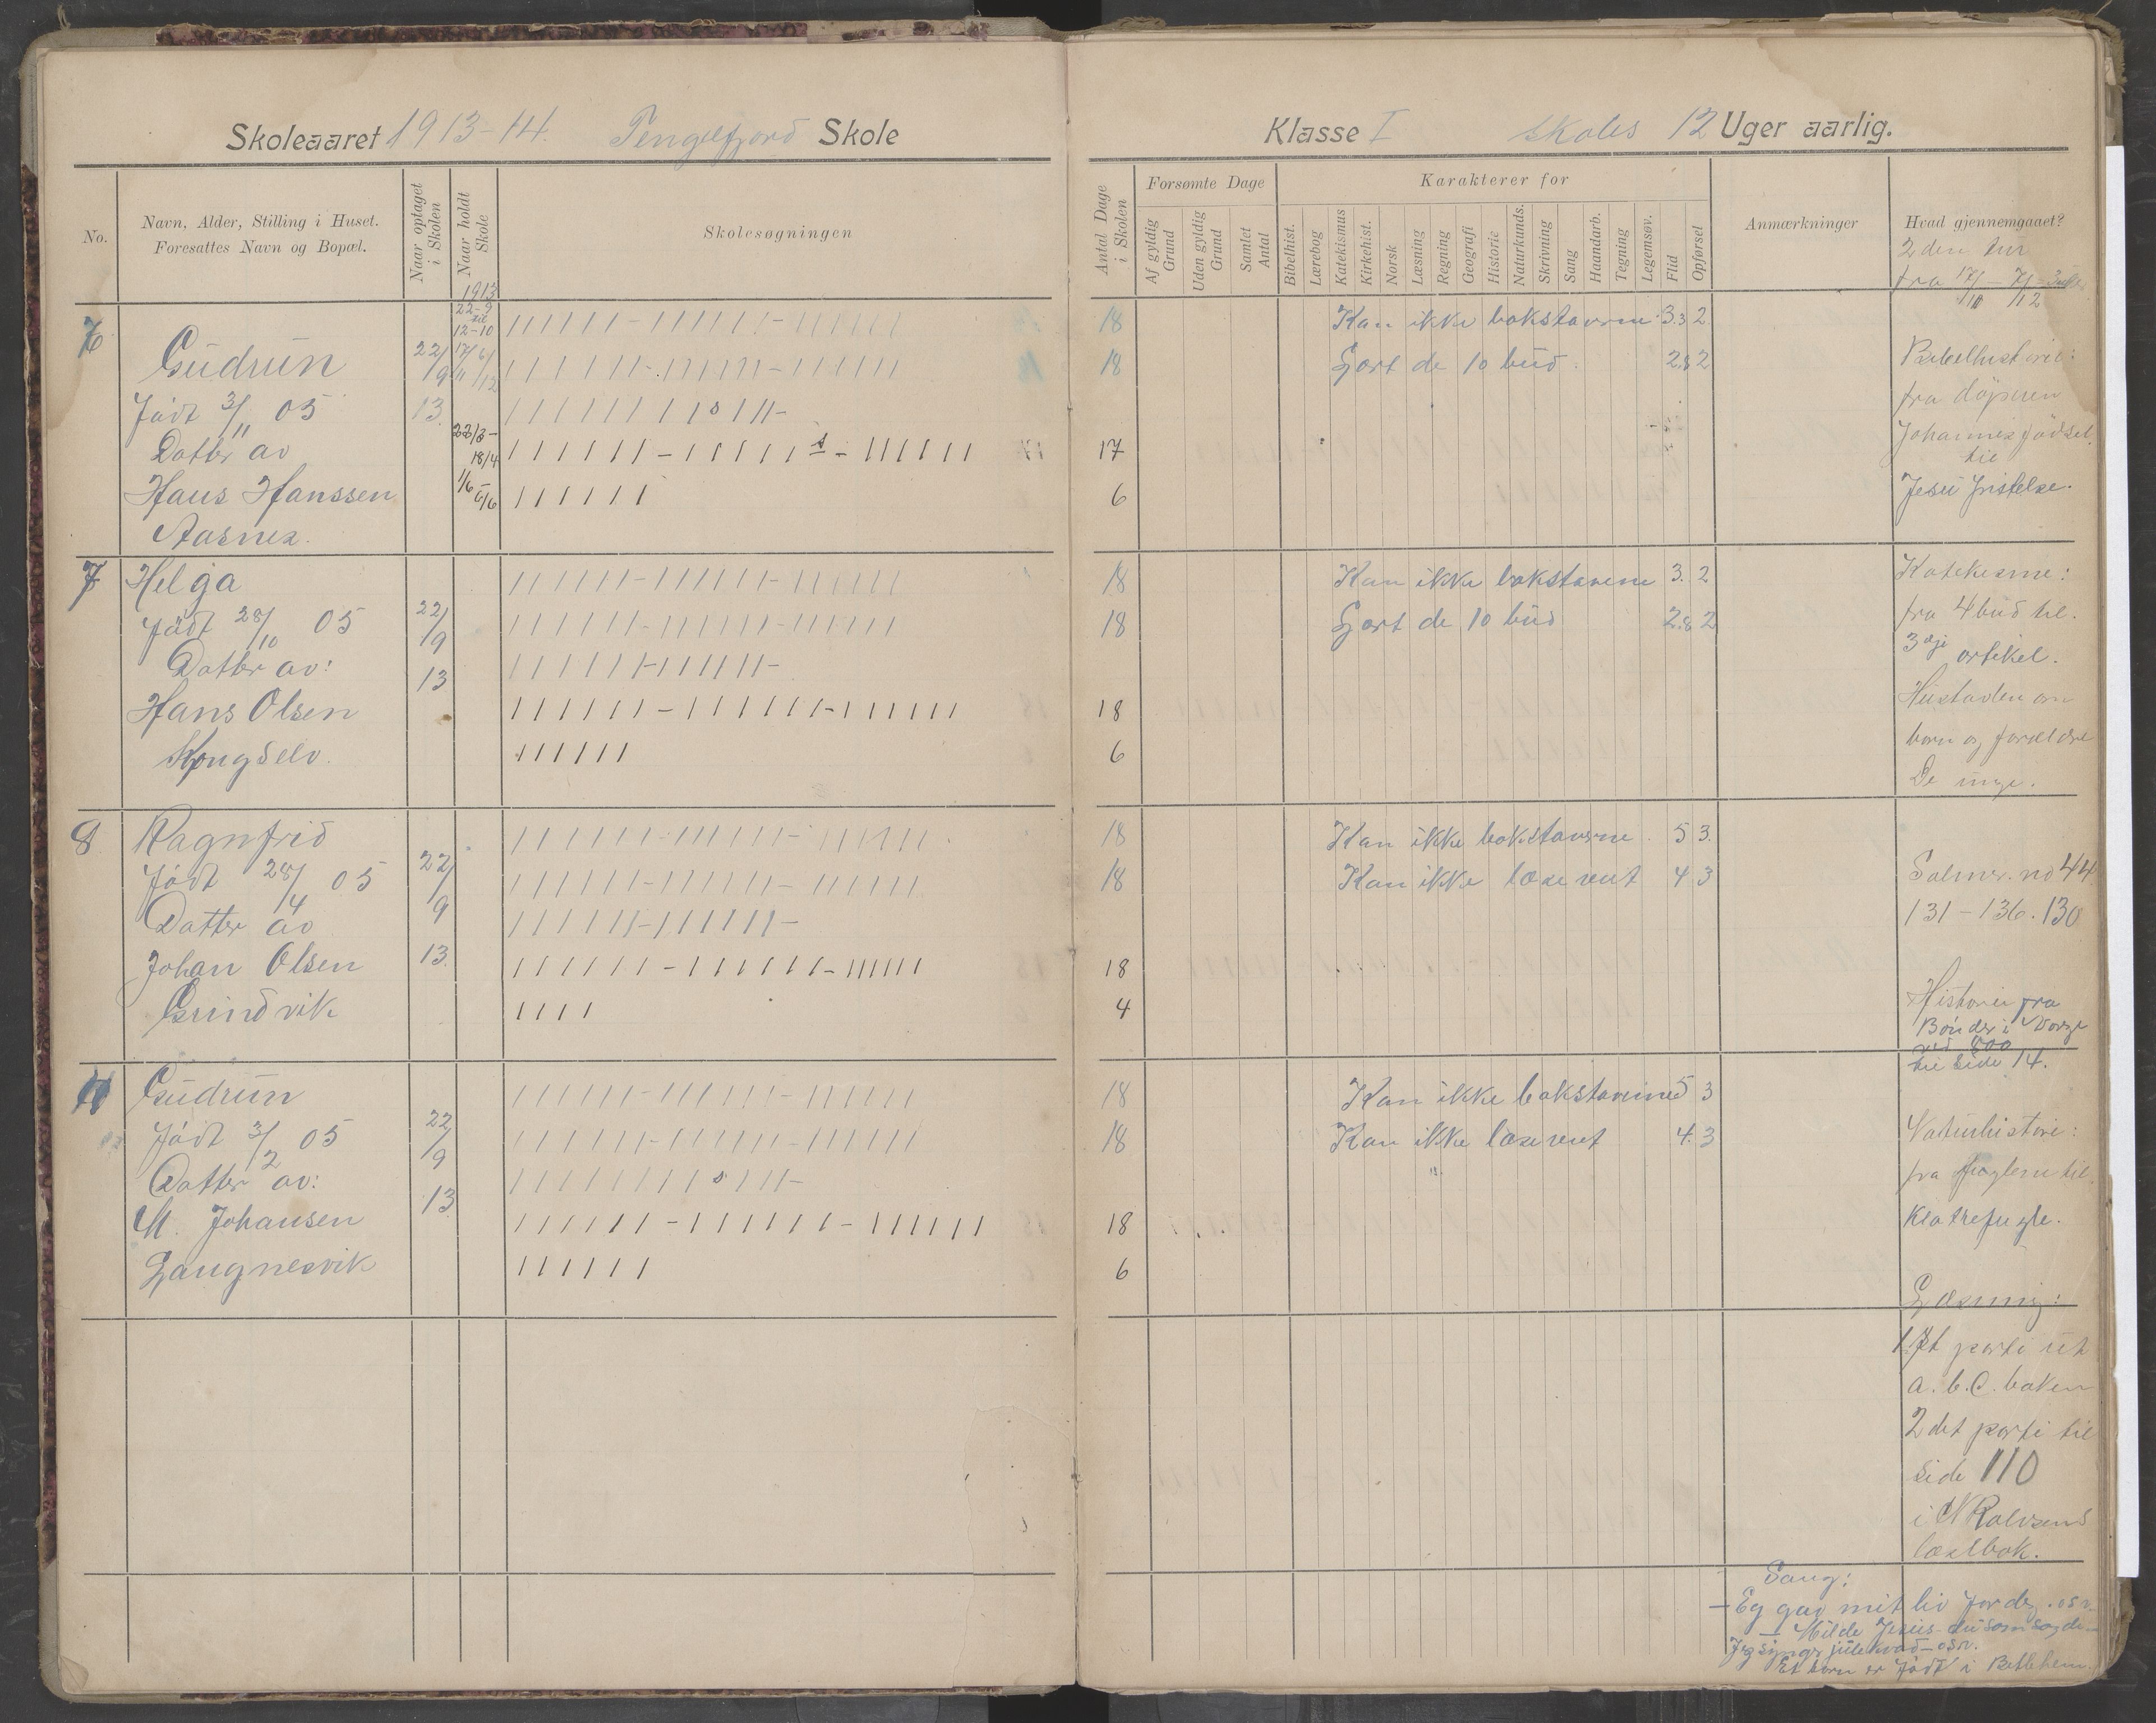 Skoleaaret 1913-14. Tengelfjord Skole
No.
Navn, Alder, Stilling i Huset.
Foresattes Navn og Bopæl.
Naar optaget
i Skolen
Naar holdt
Skole
Skolesøgningen
1913
22-9
til
12-10
6
Gudrun
Født 3/11 05
Datter av
Hans Hanssen
Aasnes.
22/9
13.
17/11 6/12
22/3-
18/4
1/6 -
6/6
7
Helga
Født 28/10 05
Datter av:
Hans Olsen
Kongselv.
22/9
13
8
Ragnfrid
Født 28/4 05
Datter av
Johan Olsen
Grindvik
22/9
13.
Gudrun
Født 3/2 05
Datter av:
M. Johansen
Langnesvik
22/9
13
Klasse I Skoles 12 Uger aarlig.
Antal Dage
i Skolen
Forsømte Dage
Af gyldig
Grund
Uden gyldig
Grund
Samlet
Antal
Karakterer for
Bibelhist.
Lærebog
Katekismus
Kirkehist.
Norsk
Læsning
Regning
Geografi
Historie
Naturkunds.
Skrivning
Sang
Haandarb.
Tegning
Legemsøv.
Flid
Opførsel
Anmærkninger
Hvad gjennemgaaet?
18 Kan ikke bokstavrne 3.3 2.
18 Lært de 10 bud. 2.8 2
17
6
18 Kan ikke bokstavene 3. 2
18 Lært de 10 bud 2.8 2
18
6
18 Kan ikke bokstaverne. 5 3.
18 Kan ikke læse rent 4 3
18
4
18 Kan ikke bokstavene 5 3
18 Kan ikke læse rent 4. 3
18
6
2den tur
fra 17/11 - 7/12
Bibelhistorie:
fra døperen
Johannes fødsel
til
Jesu fristelse.
Katekisme:
fra 4 bud til.
3dje artikel.
Hustavlen om
born og foreldre
De unge.
Salmer. no 44
131-136. 130
Historie fra
Bönder i Norge
ved 800
til side 14.
Naturhistorie:
fra fuglene til.
Klatrefugle.
Læsning:
1st parti ut
a. b. C. boken
2det parti til
side 110
i N Rolvsens
læsebok.
Sang:
- Eg gav mit liv for deg. osv.
- Milde Jesus du som sagde -
Jeg synger julekvad - osv.
Et barn er født i Betlehem.